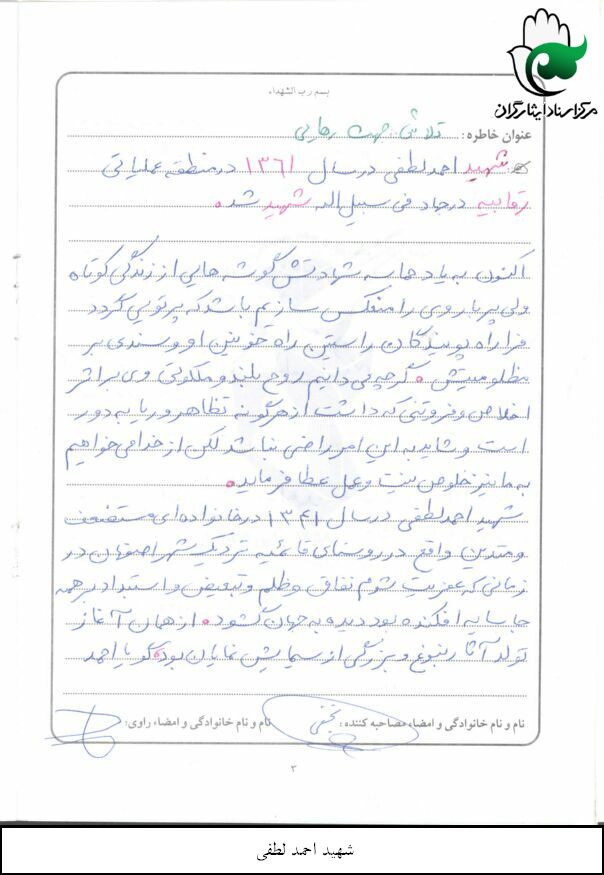 مرکز اسناد ایثارگران
بسم رب الشهداء
عنوان خاطره : تلاش جهت رهایی
شهید احمد لطفی در سال ۱۳۶۱ در منطقه عملیاتی
رقابیه در جهاد فی سبیل الله شهید شد.
اکنون به یاد حماسه شهادتش گوشه هایی از زندگی کوتاه
ولی پر بار وی را منعکس سازیم باشد که پرتویی گردد
فرا راه پویندگان راستین راه خونین او و سندی بر
مظلومیتش. گرچه می دانیم روح بلند و ملکوتی وی بر اثر
اخلاص و فروتنی که داشت از هرگونه تظاهر و ریا به دور
است و شاید به این امر راضی نباشد لکن از خدا می خواهیم
به ما نیز خلوص نیت و عمل عطا فرماید.
شهید احمد لطفی در سال ۱۳۴۱ در خانواده ای مستضعف
و متدین واقع در روستای قائمیه نزدیک شهر اصفهان در
زمانی که عفریت شوم نفاق و ظلم و تبعیض و استبداد بر همه
جا سایه افکنده بود دیده به جهان گشود. از همان آغاز
تولد آثار نبوغ و بزرگی از سیمایش نمایان بود گویا احمد
نام و نام خانوادگی و امضاء مصاحبه کننده : نجفی
نام و نام خانوادگی و امضاء راوی:
۳
شهید احمد لطفی